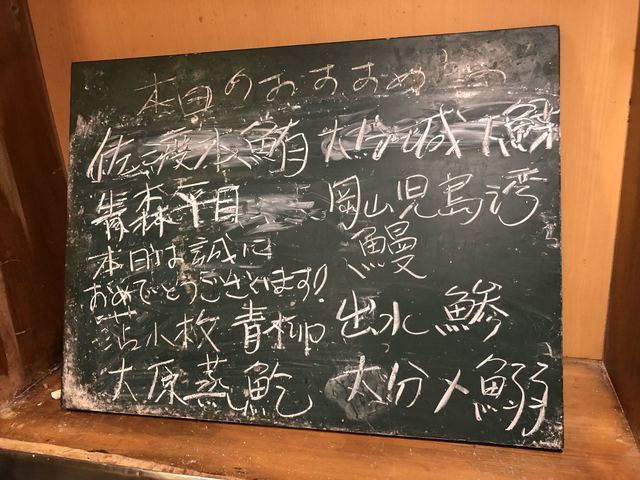 本日のおすすめ
佐渡本鮪
青森平目
本日は誠に
おめでとうございます!!
苫小牧 青柳
大原蒸鮑
岡山児島湾
鰻
出水 鯵
大分〆鰯